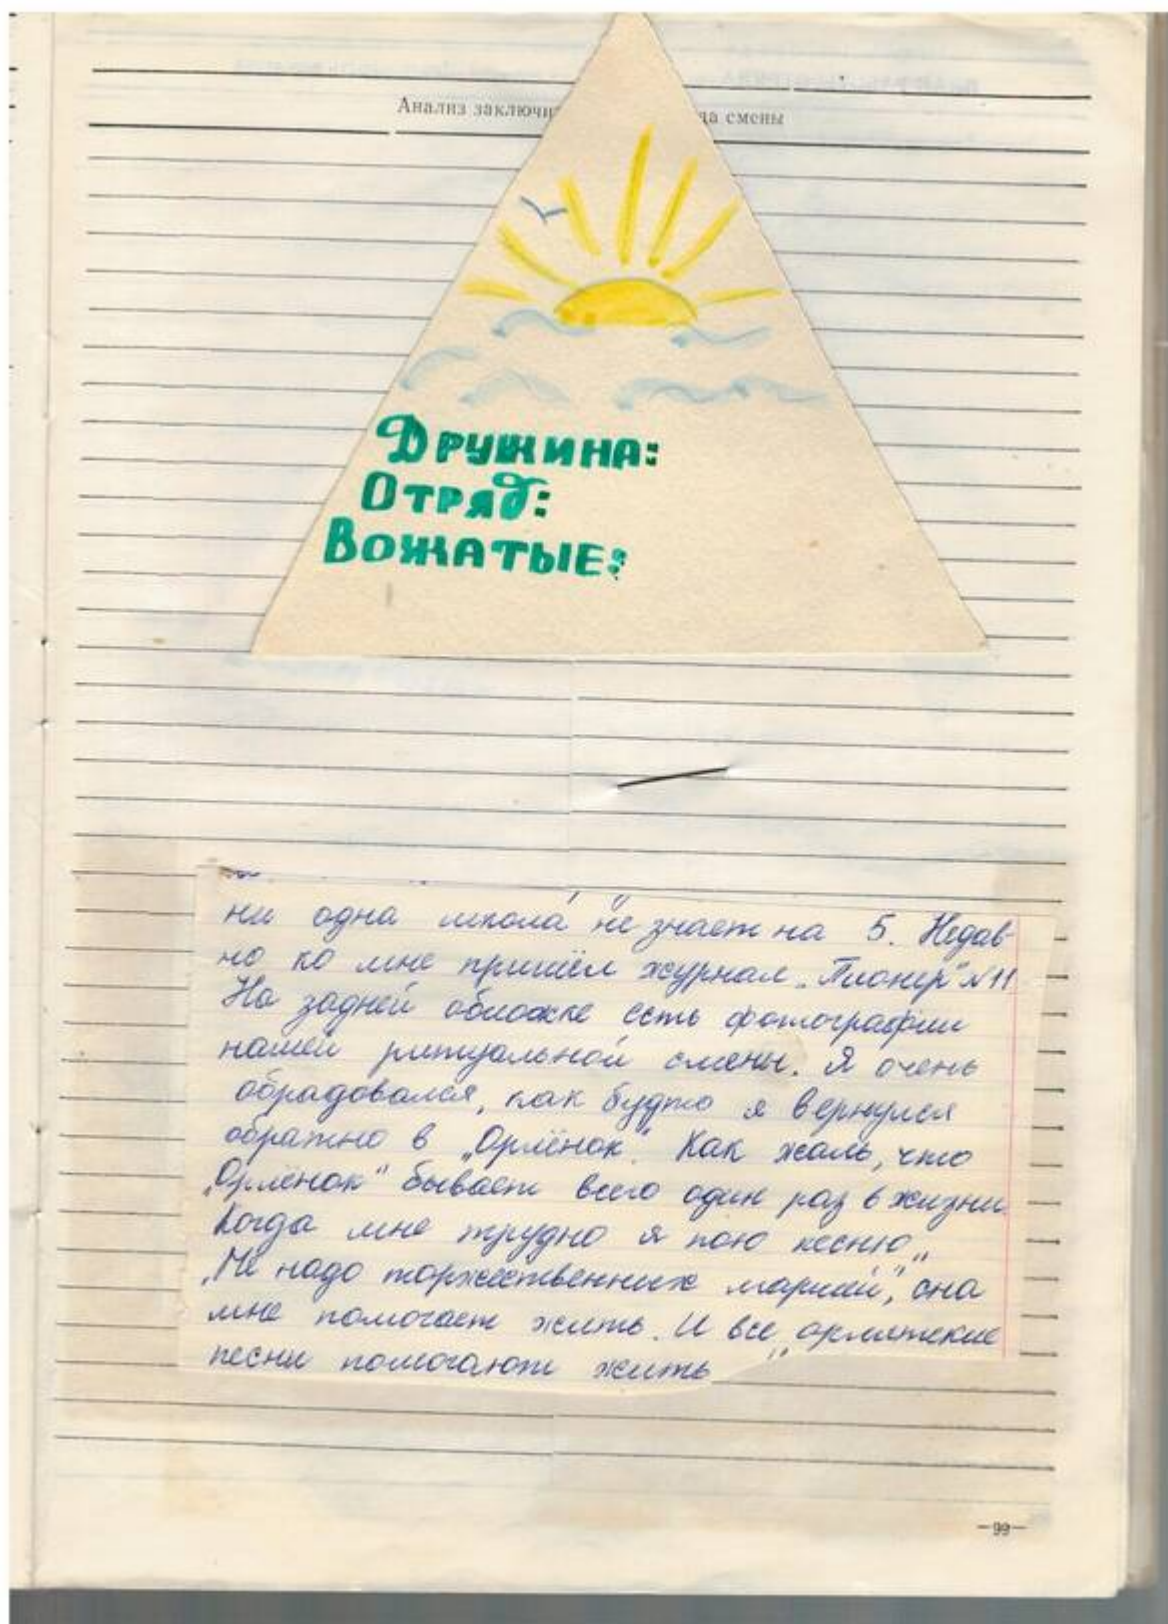 Анализ заключи да смены
Дружина:
Отряд:
Вожатые:
ни одна школа не знает на 5. Недав-
но ко мне пришёл журнал „Пионер" N11
На задней обложке есть фотографии
нашей ритуальной смены. Я очень
обрадовался, как будто я вернулся
обратно в „Орлёнок". Как жаль, что
„Орленок" бывает всего один раз в жизни.
Когда мне трудно я пою песню
„Не надо торжественных маршей", она
мне помогает жить. И все „орлятские
песни помогают жить"
—99—